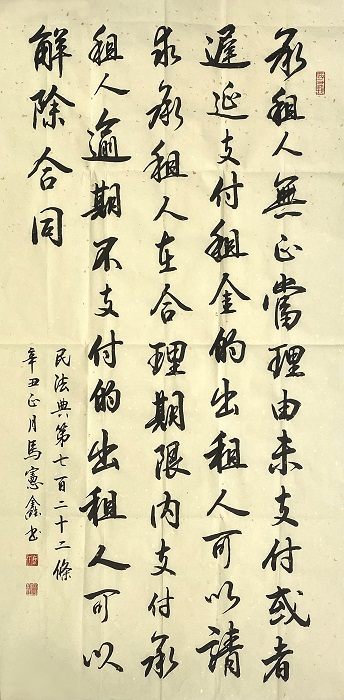 承租人無正當理由未支付或者
遲延支付租金的出租人可以請
求承租人在合理期限内支付承
租人逾期不支付的出租人可以
解除合同
民法典第七百二十二條
辛丑正月馬憲鑫书